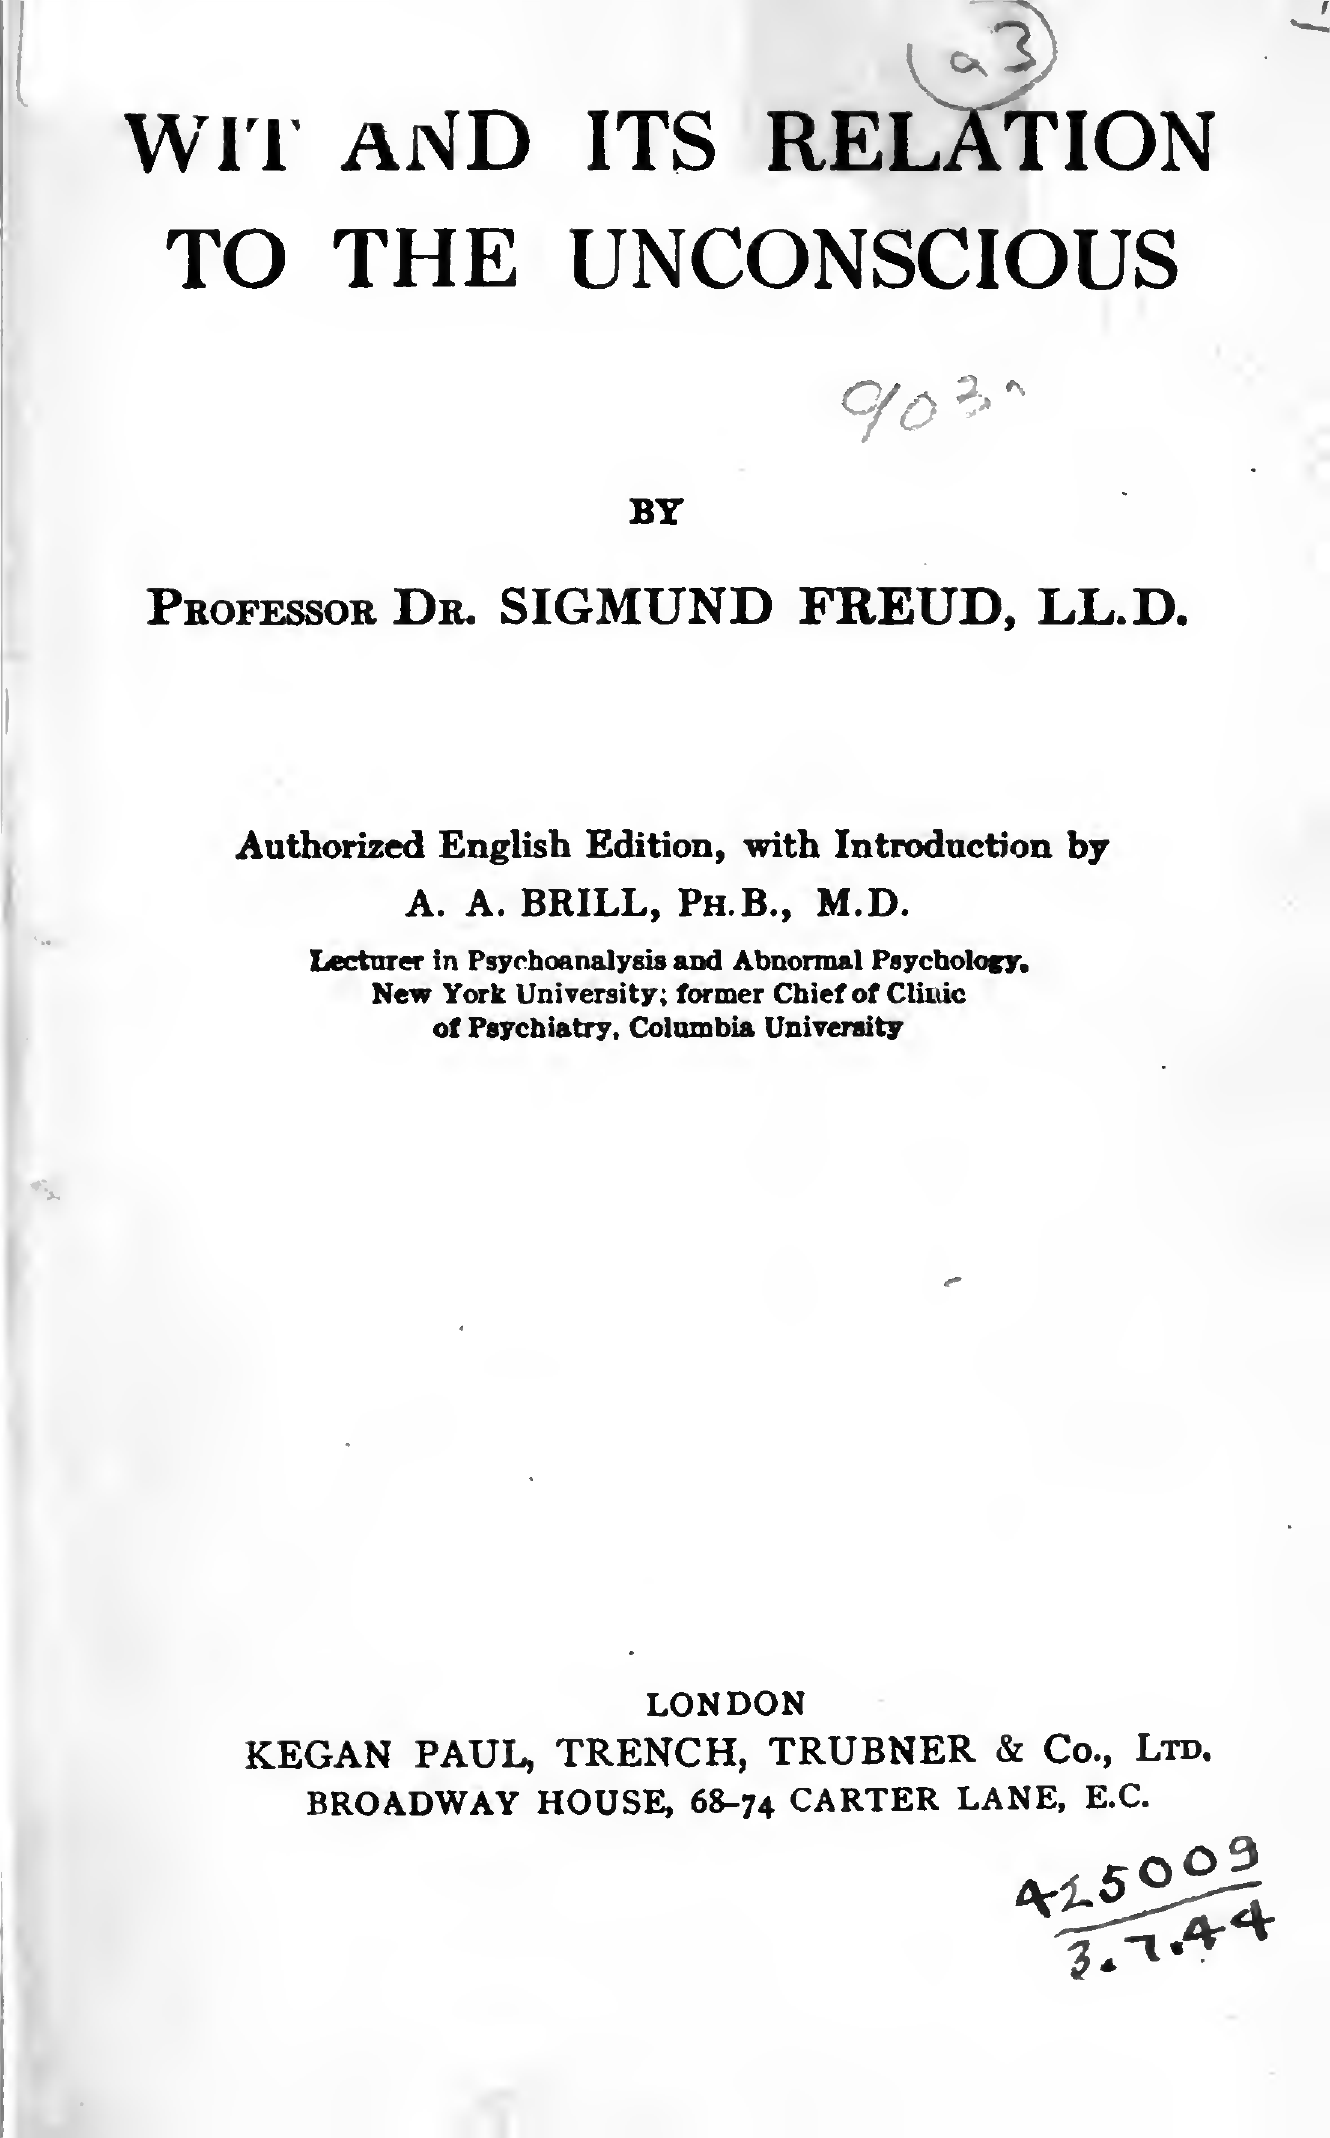 a3
WIT AND ITS RELATION
TO THE UNCONSCIOUS
BY
PROFESSOR DR. SIGMUND FREUD, LL.D.
Authorized English Edition, with Introduction by
A. A. BRILL, PH.B., M.D.
Lecturer in Psychoanalysis and Abnormal Psychology,
New York University; former Chief of Clinic
of Psychiatry, Columbia University
LONDON
KEGAN PAUL, TRENCH, TRUBNER & Co., LTD.
BROADWAY HOUSE, 68-74 CARTER LANE, E.C.
425009
3.7.44